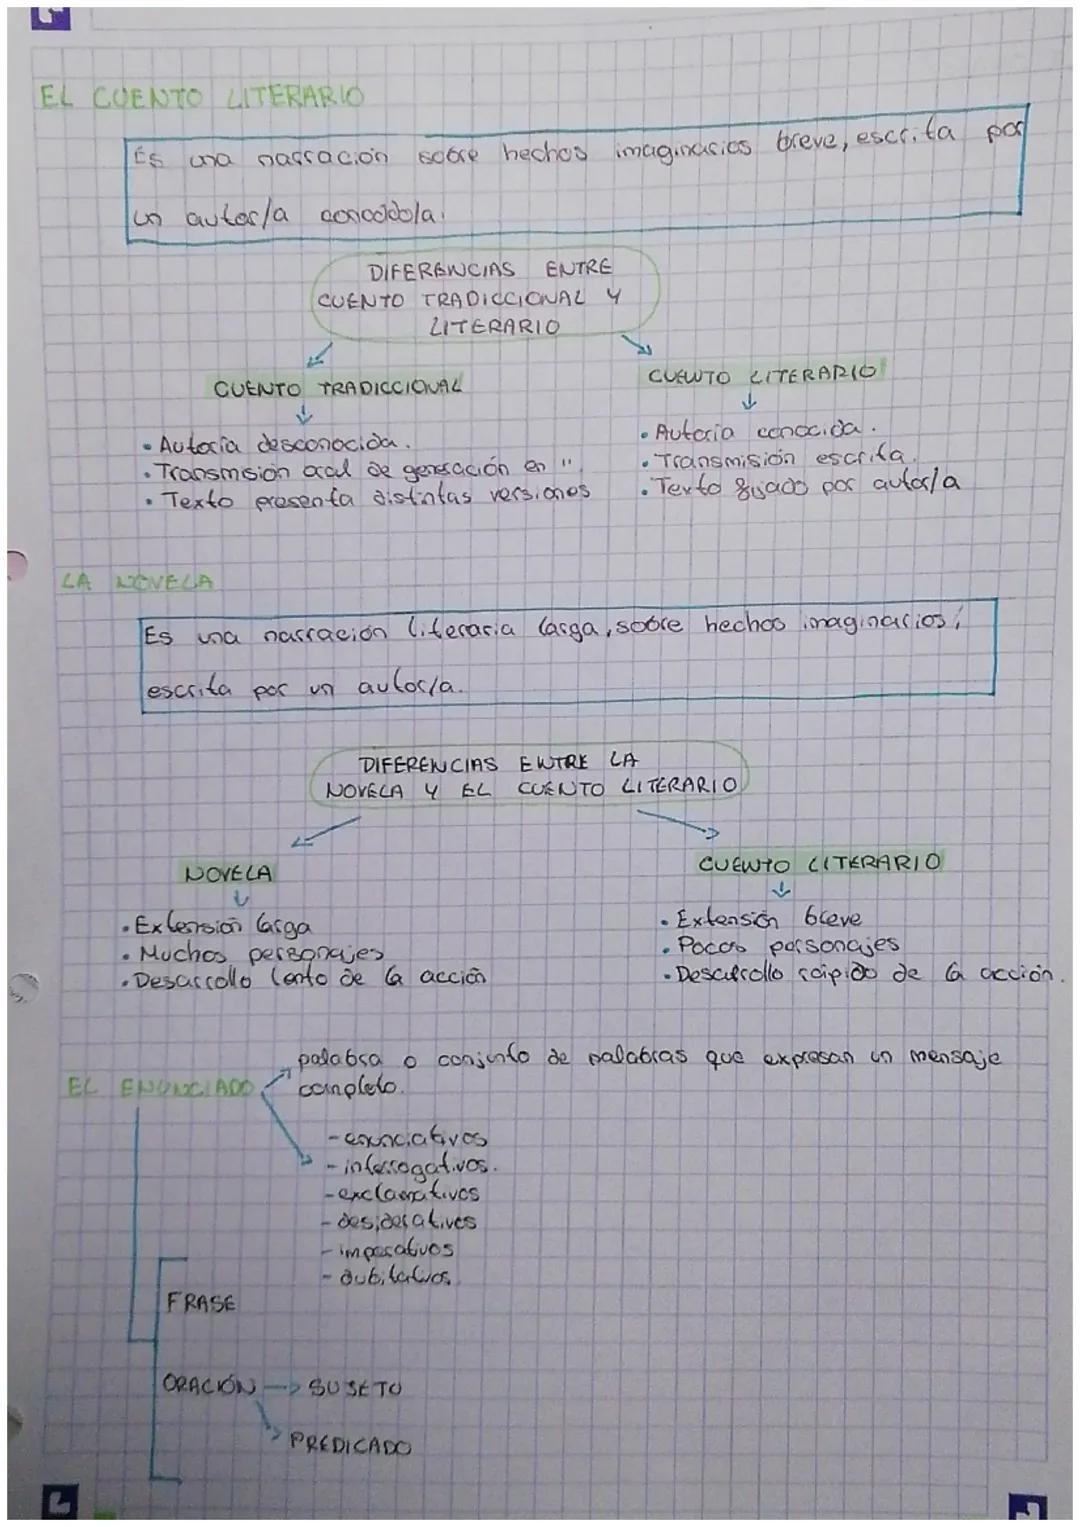 EL CUENTO LITERARIO
Es una narración sobre hechos imaginarios breve, escrita por
un autor/a conocido/a.
DIFERENCIAS ENTRE
CUENTO TRADICCIONAL Y
LITERARIO
CUENTO TRADICCIONAL
CUENTO LITERARIO
• Autoría desconocida.
• Transmisión oral de generación en "
• Texto presenta distintas versiones
• Autoría conocida.
• Transmisión escrita.
• Texto fijado por autor/a
LA NOVELA
Es una narración literaria larga, sobre hechos imaginarios,
escrita por un autor/a.
DIFERENCIAS ENTRE LA
NOVELA Y EL CUENTO LITERARIO
NOVELA
CUENTO LITERARIO
• Extensión larga
• Muchos personajes
• Desarrollo lento de la acción
• Extensión breve
• Pocos personajes
• Desarrollo rápido de la acción.
EL ENUNCIADO
palabra o conjunto de palabras que expresan un mensaje
completo.
- enunciativos
- interrogativos.
- exclamativos
- desiderativos
- imperativos
- dubitativos.
FRASE
ORACIÓN → SUJETO
PREDICADO